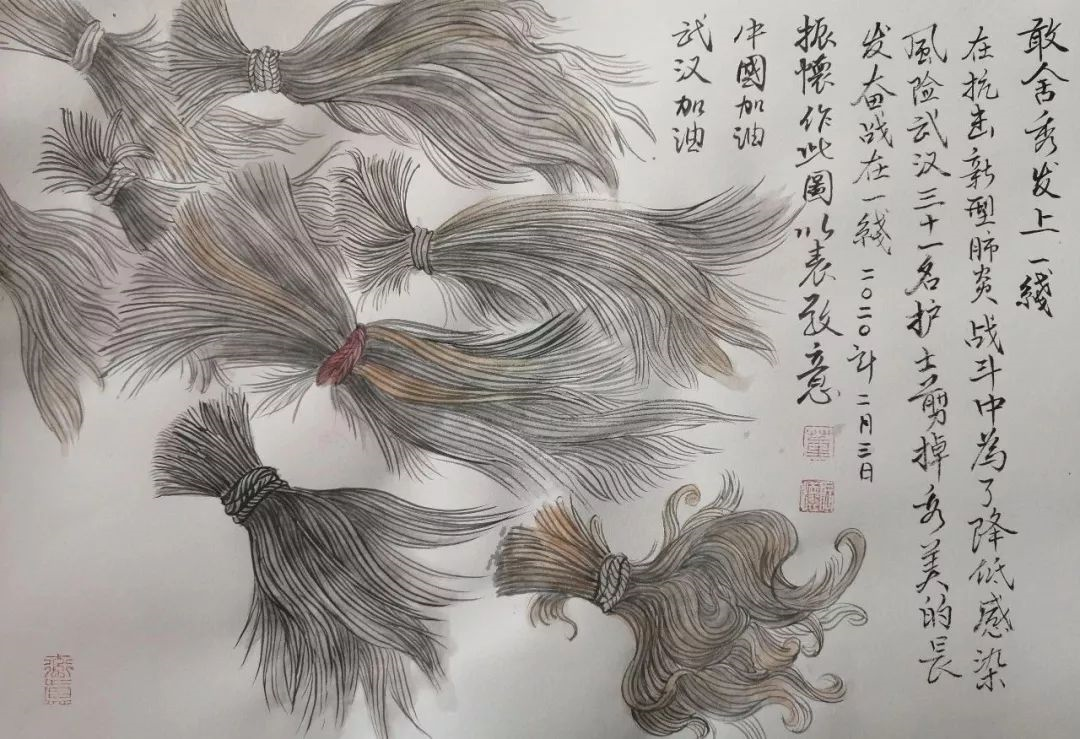 敢舍秀发上一线
在抗击新型肺炎战斗中為了降低感染
風险武汉三十一名护士剪掉秀美的長
发奋战在一綫 二〇二〇年二月三日
振懷作此圖以表敬意
中國加油
武汉加油